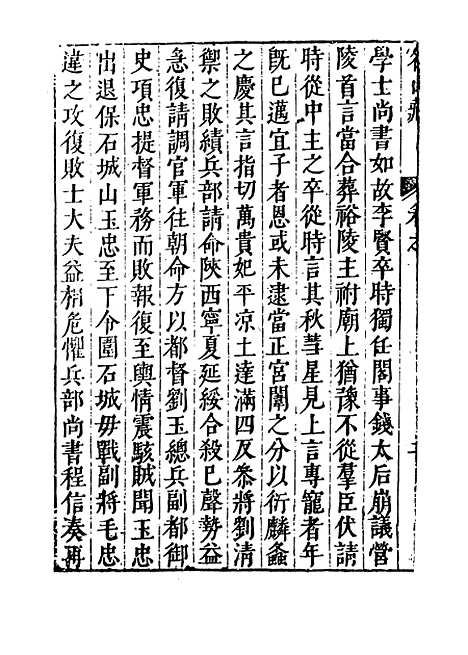 學士尚書如故李賢卒時獨任閣事錢太后崩議營
陵首言當合葬裕陵主祔廟上猶豫不從羣臣伏請
時從中主之卒從時言其秋彗星見上言專寵者年
既已邁宜子者恩或未逮當正宮闈之分以衍麟螽
之慶其言指切萬貴妃平凉土達滿四反叅將劉清
禦之敗績兵部請命陝西寧夏延綏合殺巳聲勢益
急復請調官軍往朝命方以都督劉玉總兵副都御
史項忠提督軍務而敗報復至輿情震駭賊聞玉忠
出退保石城山玉忠至下令圍石城毋戰副將毛忠
違之攻復敗士大夫益稍危懼兵部尚書程信奏再